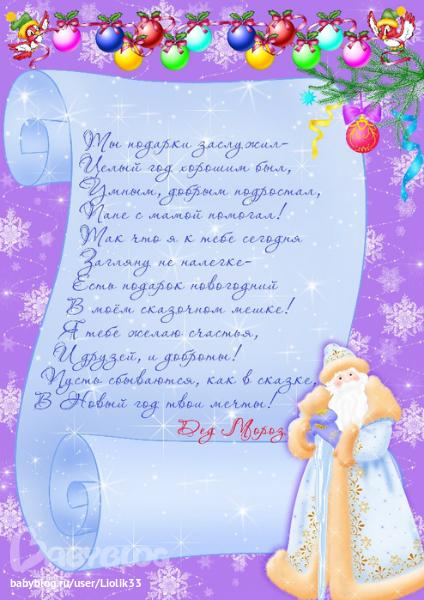 Ты подарки заслужил-
Целый год хорошим был,
Умным, добрым подростал,
Папе с мамой помогал!
Так что я к тебе сегодня
Загляну не налегке-
Есть подарок новогодний
В моём сказочном мешке!
Я тебе желаю счастья,
И друзей, и доброты!
Пусть сбываются, как в сказке,
В Новый год твои мечты!
Дед Мороз
BABYBLOG
babyblog.ru/user/Liolik33